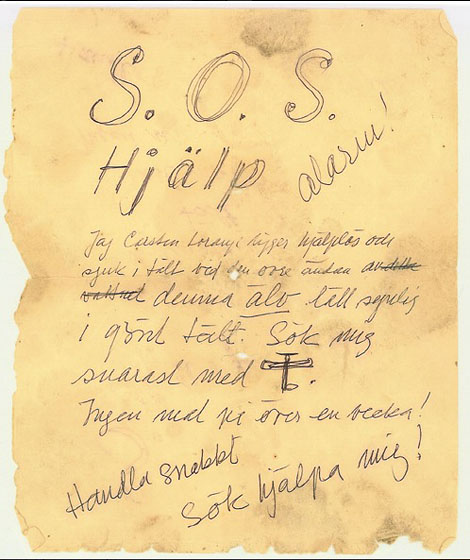 S. O. S.
Hjälp alarm!
Jag Carsten ligger hjälplös och
sjuk i tält vid den övre ändan av detta
vattnet denna älv lätt synlig
i grönt tält. Sök mig
snarast med
Ingen mat på över en vecka!
Handla snabbt
Sök hjälpa mig!